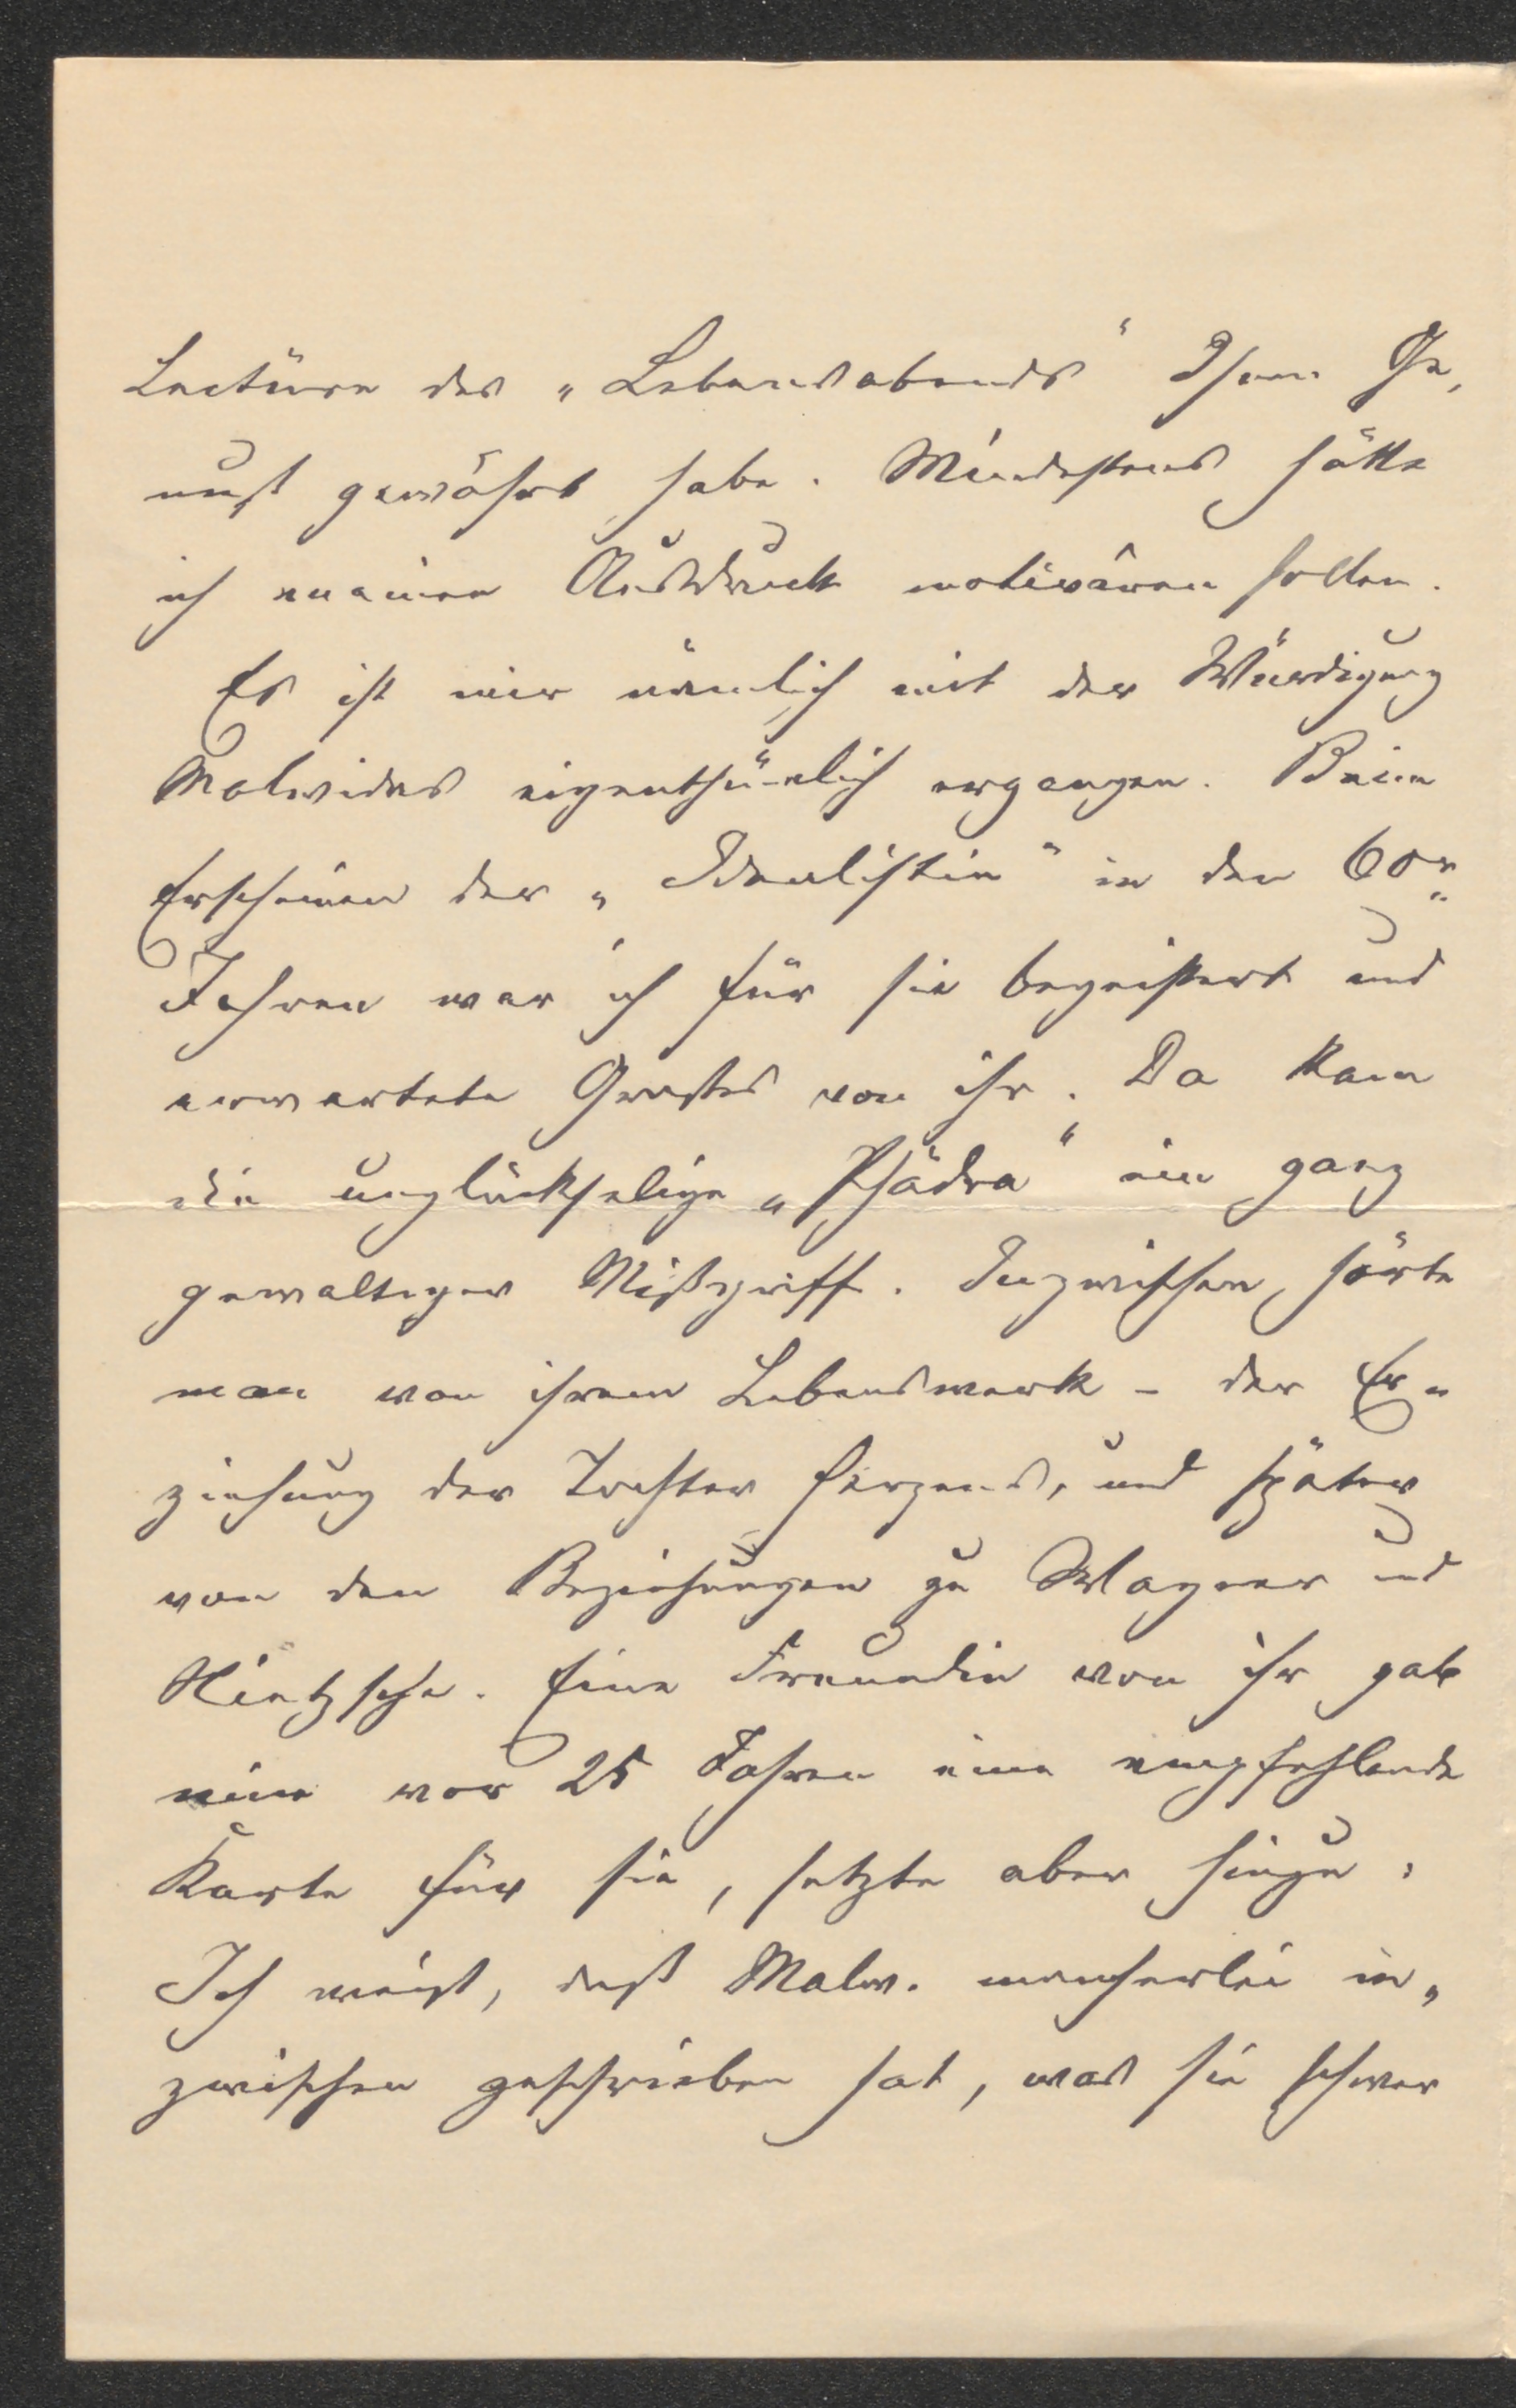 Lectüre des „Lebensabends" Ihnen Ge,
nuß gewährt habe. Mindestens hätte
ich meinen Ausdruck motiviren sollen.
Es ist mir nämlich mit der Würdigung
Malvidas eigenthümlich ergangen. Beim
Erscheinen der „Idealistin" in den 60er
Jahren war ich für sie begeistert und
erwartete Großes von ihr. Da kam
die unglückselige „Phädra" ein ganz
gewaltiger Mißgriff. Inzwischen hörte
man von ihrem Lebenswerk - der Er-
ziehung der Tochter Herzens, und später
von den Beziehungen zu Wagner und
Nietzsche. Eine Freundin von ihr gab
mir vor 25 Jahren eine empfehlende
Karte für sie, setzte aber hinzu:
Ich weiß, daß Malw. mancherlei in,
zwischen geschrieben hat, was sie schwer